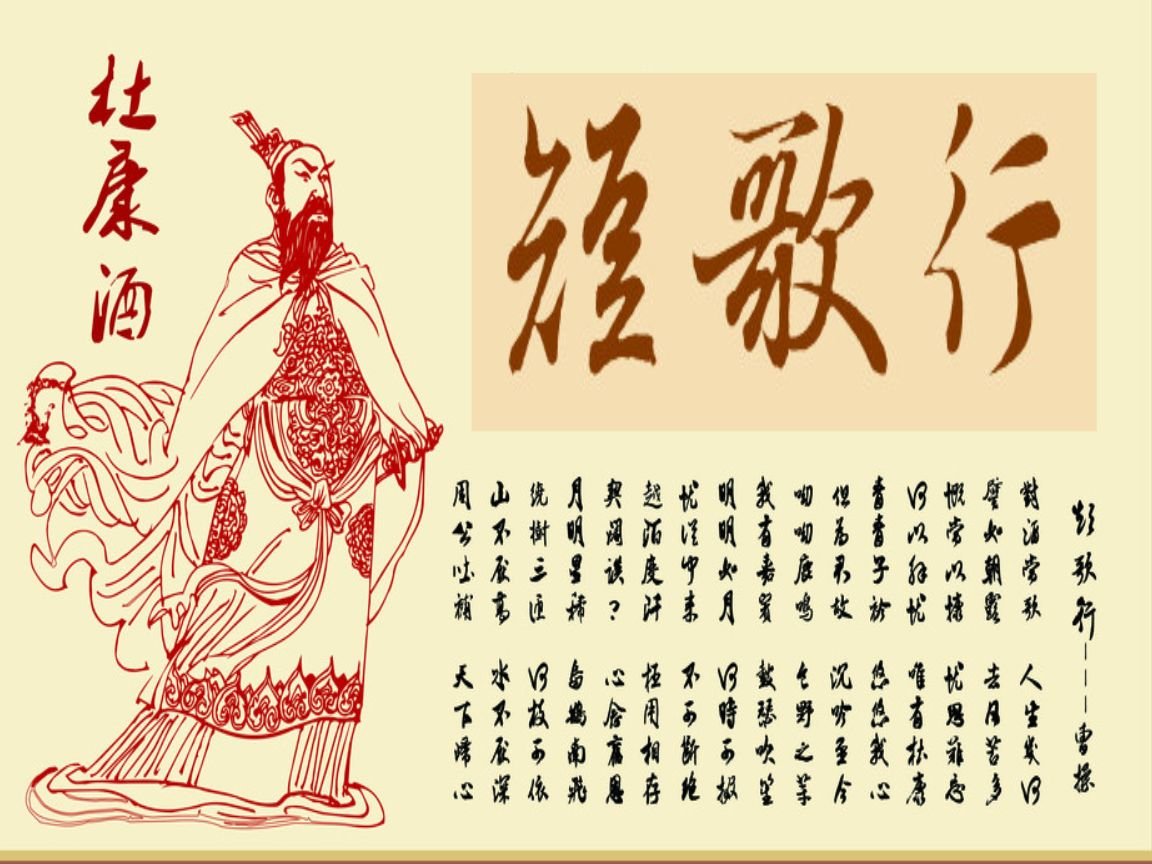 杜康酒
短歌行
短歌行---曹操
對酒當歌 人生幾何
譬如朝露 去日苦多
慨當以慷 忧思難忘
何以解忧 唯有杜康
青青子衿 悠悠我心
但為君故 沉吟至今
呦呦鹿鳴 食野之苹
我有嘉賓 鼓瑟吹笙
明明如月 何時可掇
忧從中來 不可斷絕
越陌度阡 枉用相存
契闊談? 心念舊恩
月明星稀 烏鵲南飛
繞樹三匝 何枝可依
山不厭高 水不厭深
周公吐哺 天下歸心